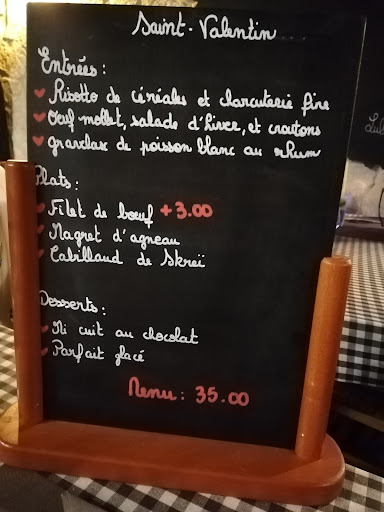 Saint-Valentin...
Entrées:
Risotto de céréales et charcuterie fine
Oeuf mollet, salade d'hiver, et croutons
gravelax de poisson blanc au rhum
Plats:
Filet de boeuf +3.00
Magret d'agneau
Cabillaud de Skreï
Desserts:
Mi cuit au chocolat
Parfait glacé
Menu: 35.00